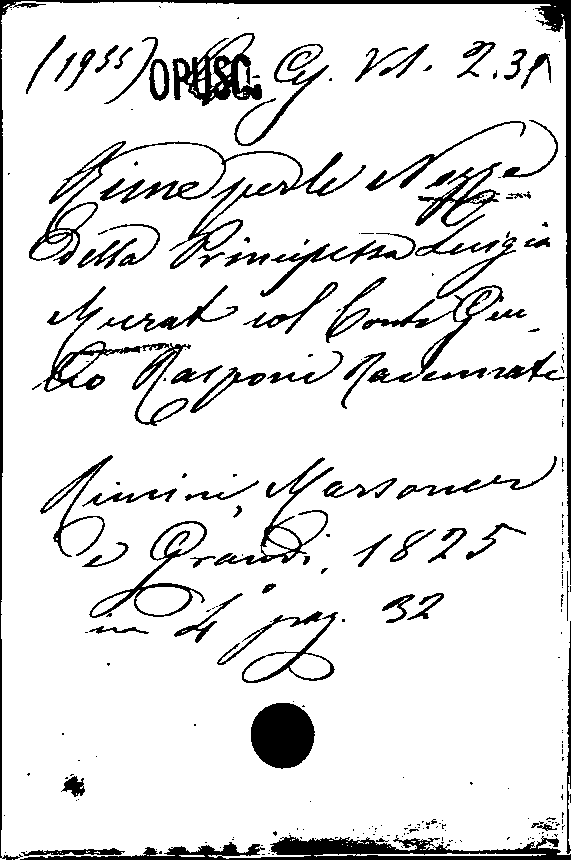 (1955) OPUSC. Cy. Vol. 2.31
Rime per le Nozze
della Principessa Luigia
Murat col Conte Giu-
lio Rasponi Ravennate
Rimini, Marsoner
e Grandi, 1825
in 4° pag. 32